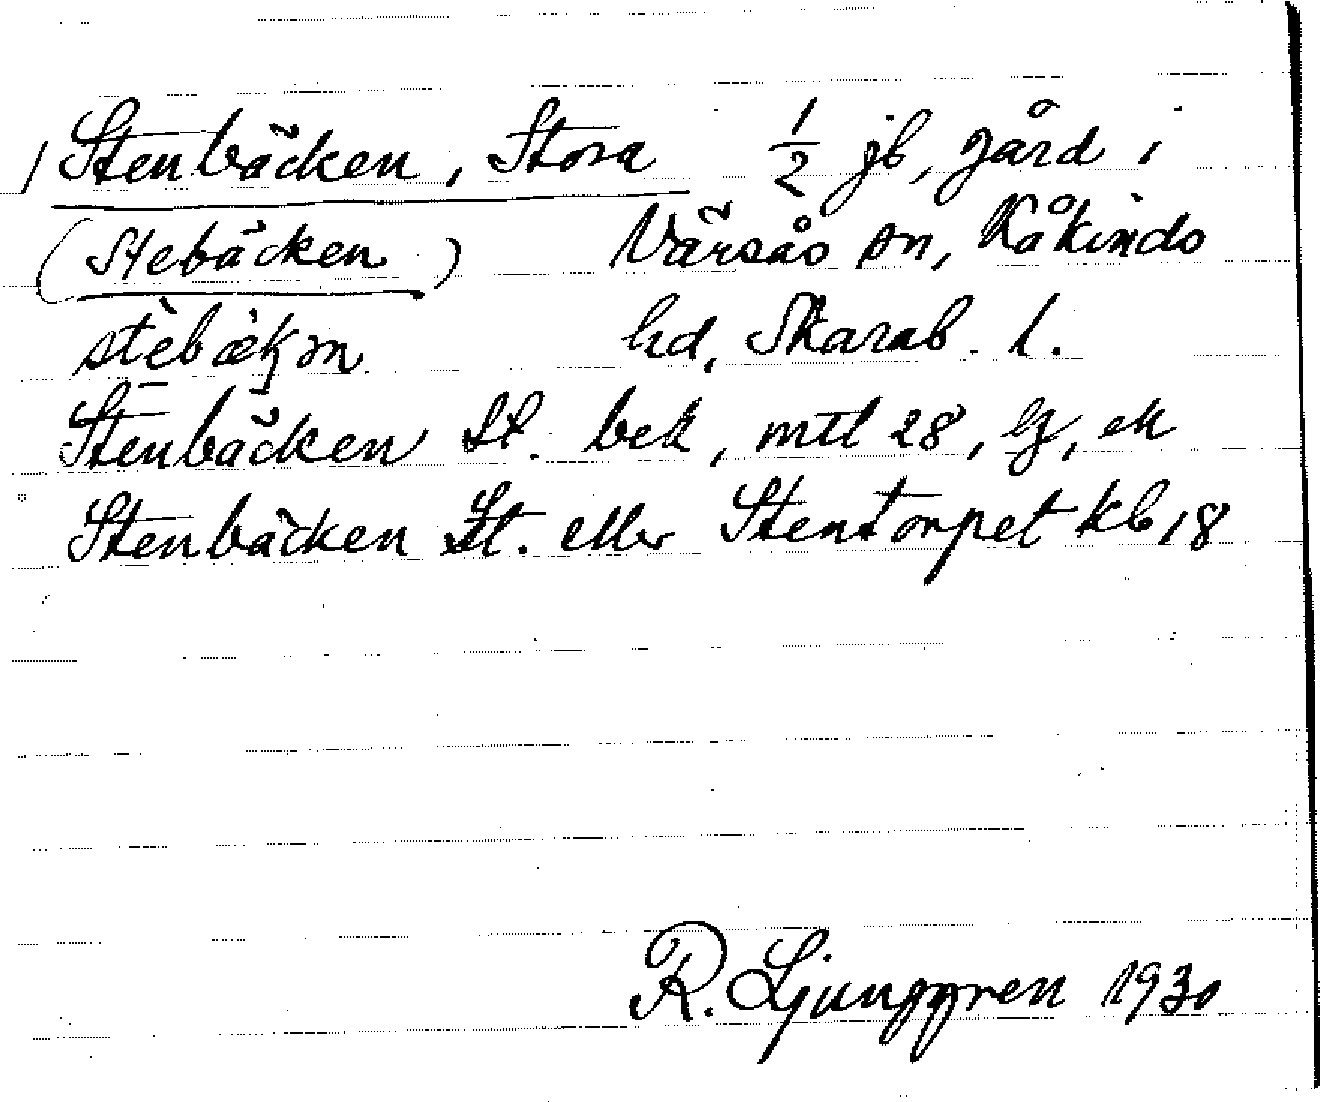 / Stenbäcken, Stora 1/2 jb, gård i
(Stebäcken) Värsås sn, Kåkinds
hd, Skarab. l.
Stenbäcken St. bek, mtl 28, ek
Stenbäcken St. eller Stentorpet kb 18
R. Ljunggren 1930